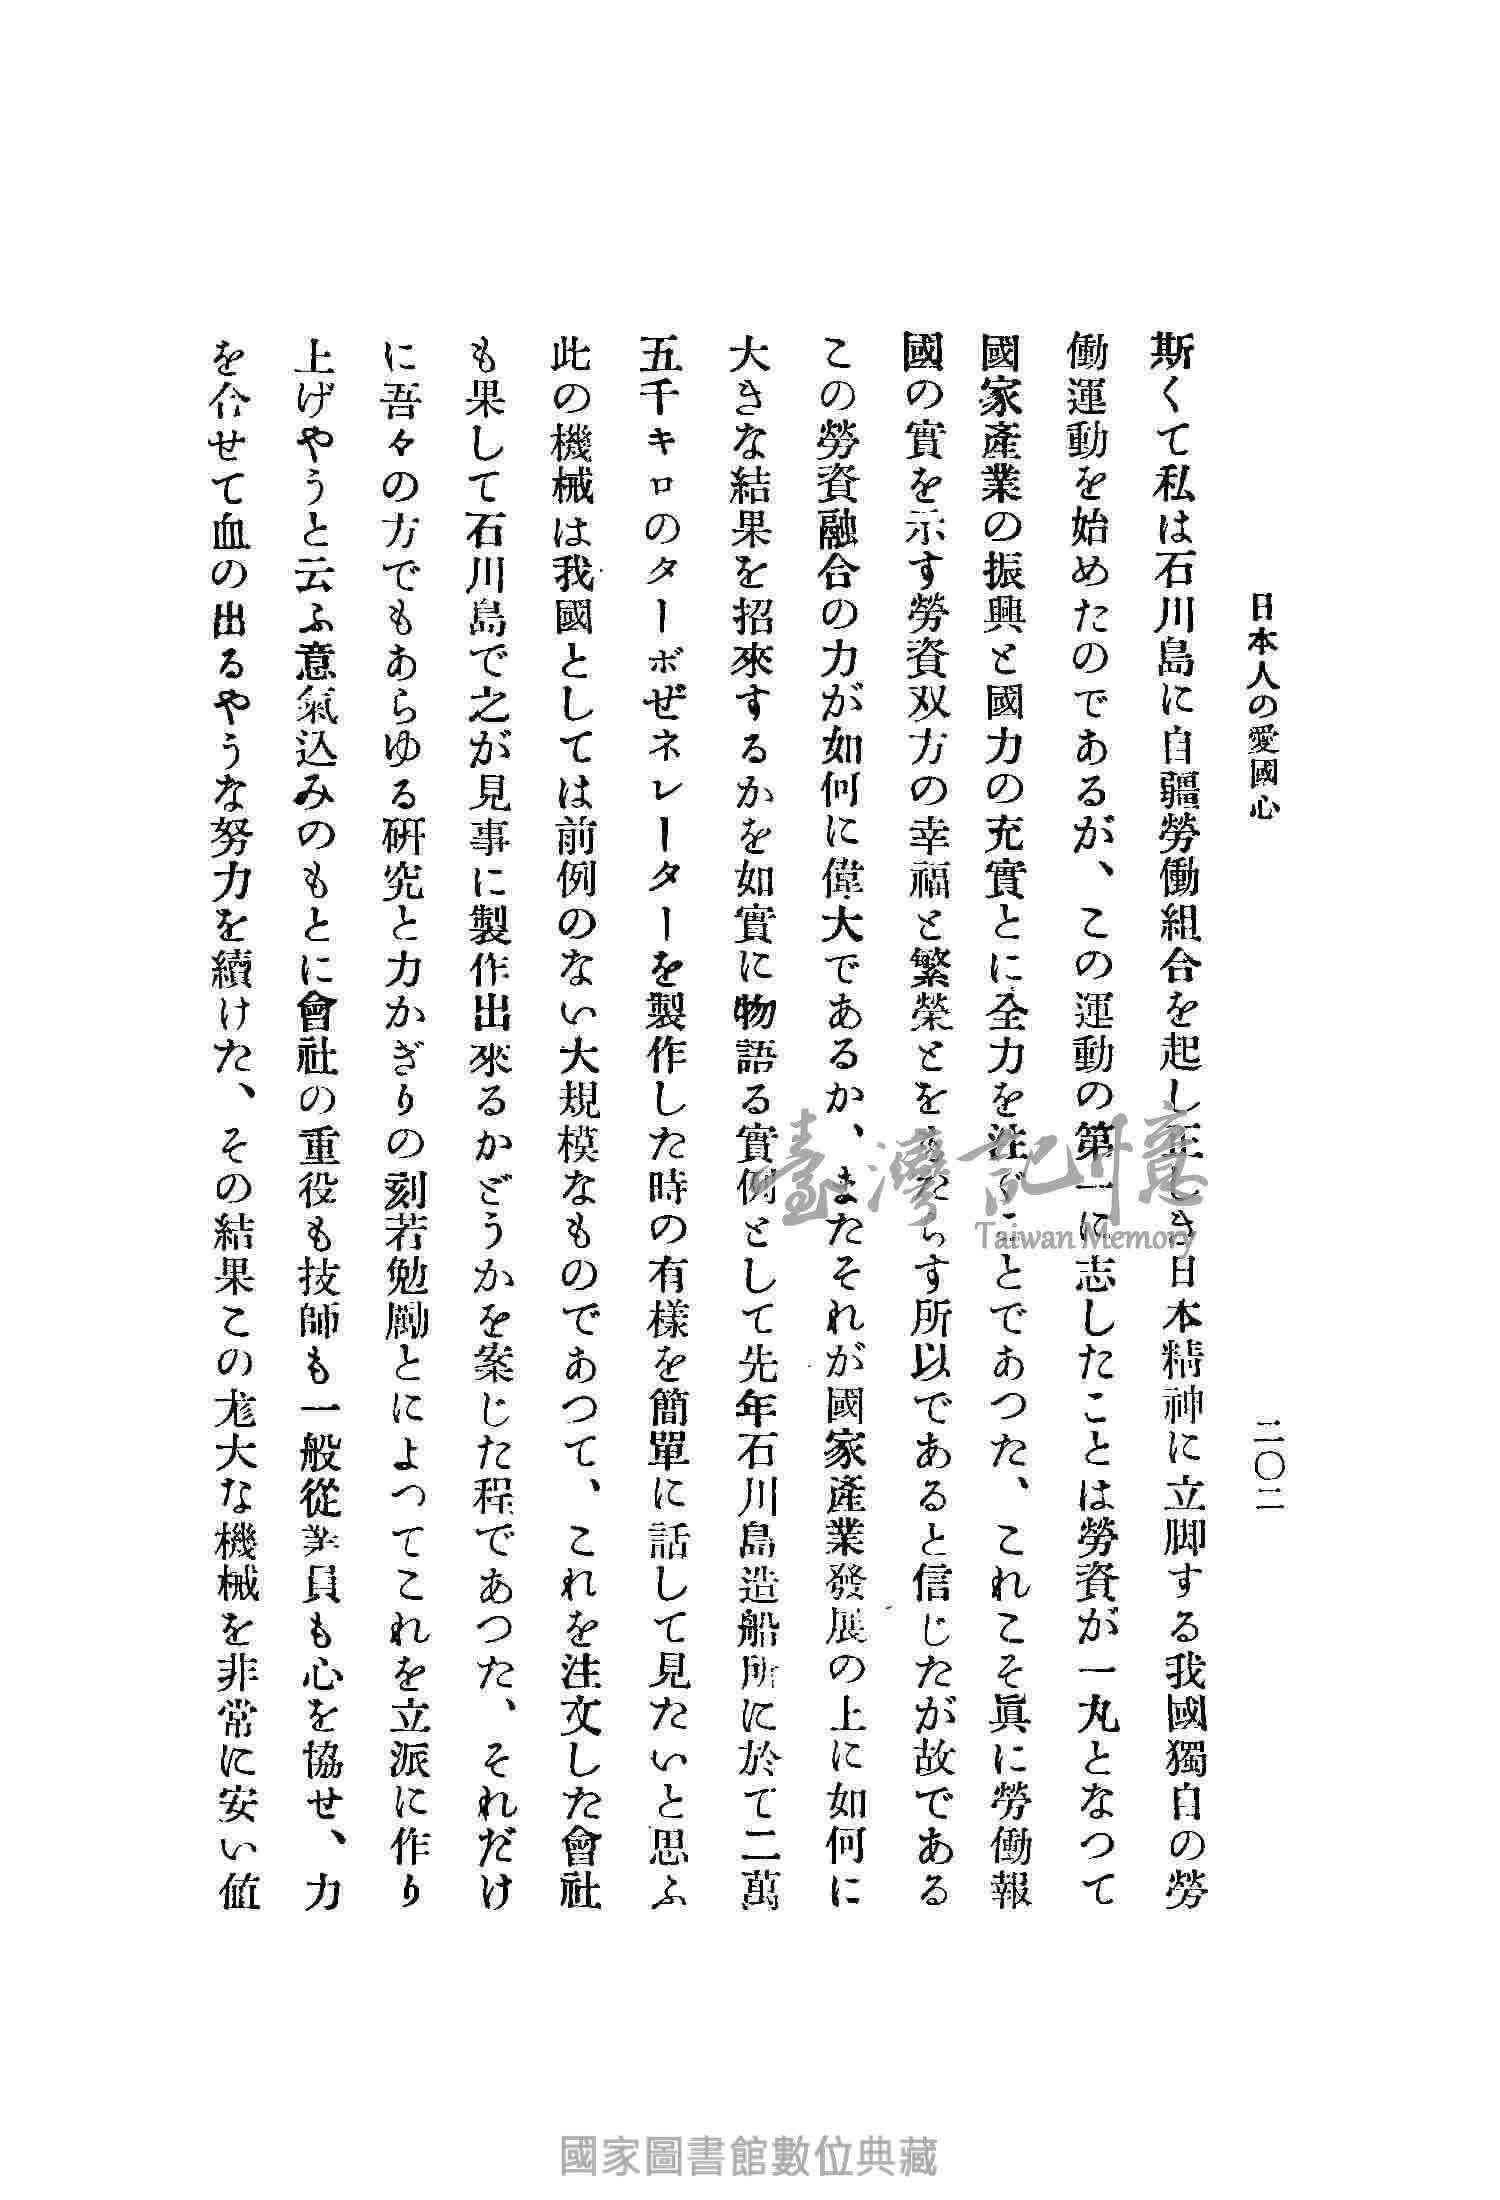 日本人の愛國心
二〇二
斯くて私は石川島に自疆勞働組合を起し正しき日本精神に立脚する我國獨自の勞
働運動を始めたのであるが、この運動の第一に志したことは勞資が一丸となつて
國家產業の振興と國力の充實とに全力を注ぐことであつた、これこそ眞に勞働報
國の實を示す勞資双方の幸福と繁榮とをもたらす所以であると信じたが故である
この勞資融合の力が如何に偉大であるか、またそれが國家產業發展の上に如何に
大きな結果を招來するかを如實に物語る實例として先年石川島造船所に於て二萬
五千キロのターボぜネレーターを製作した時の有樣を簡單に話して見たいと思ふ
此の機械は我國としては前例のない大規模なものであつて、これを注文した會社
も果して石川島で之が見事に製作出來るかどうかを案じた程であつた、それだけ
に吾々の方でもあらゆる硏究と力かぎりの刻苦勉勵とによつてこれを立派に作り
上げやうと云ふ意氣込みのもとに會社の重役も技師も一般從業員も心を協せ、力
を合せて血の出るやうな努力を續けた、その結果この尨大な機械を非常に安い値
臺灣記憶
Taiwan Memory
國家圖書館數位典藏